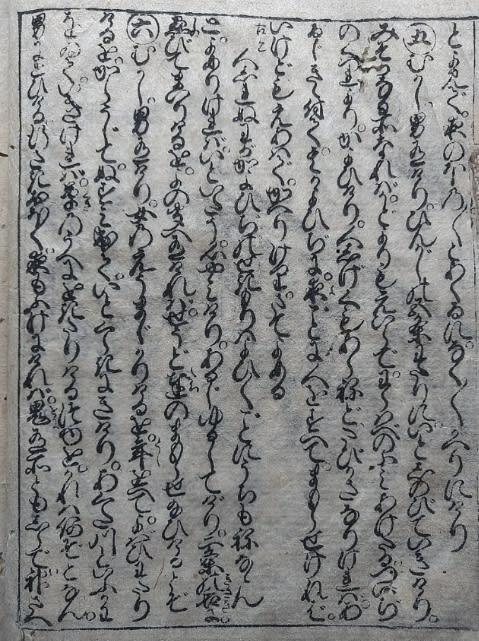 とよみて。夜のほの〴〵とあくるに。なく〳〵かへりにけり
㊄むかし男有けり。ひんがしの五条わたりにいと忍びていきけり。
みそかなる所なれば。かどよりもえいらでわらべのふみあけたるついひぢ
のくづれよりかよひけり。人しげくもあらねどたびかさなりければあ
るじきゝ付てそのかよひぢに夜ごとに人をすへて。まもらせければ。
いけどもえあはでかへりけり。さてよめる
古今 人しれぬわがかよひぢのせきもりはよひ〳〵ごとにうちもねなゝん
とよめりければいといたう心やみけり。あるじゆるしてけり。二条の后に
忍びてまいりけるを。よのきこえ有ければ。せうと達のまもらせ給ひけるとぞ
㊅むかし男有けり。女のえうまじかりけるを。年をへてよばひわたり
けるをからうじてぬすみ出ていとくらきにきけり。あくた川といふ河
をゐていきければ。草のうへにをきたりける露を。かれは何ぞとなん
男にとひけるゆくさきおほく夜もふけにければ。鬼有所ともしらで神さへ